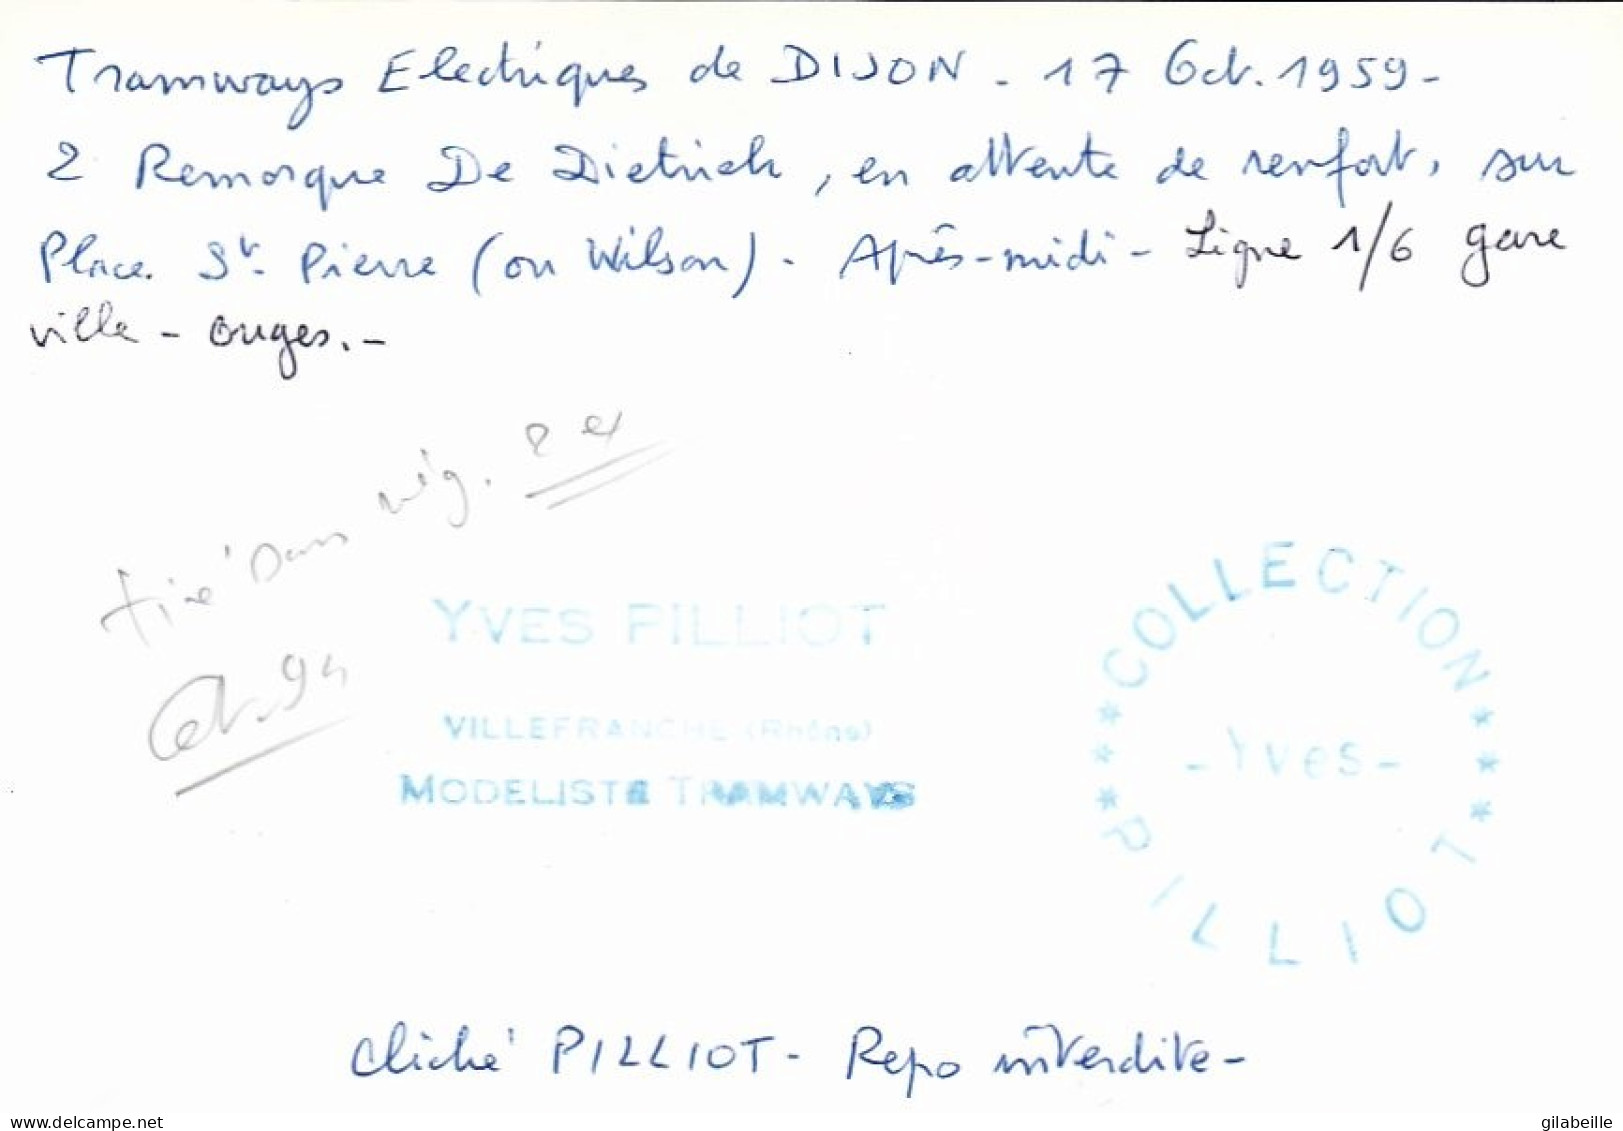 Tramways Electriques de DIJON - 17 Oct. 1959 -
2 Remorque De Dietrich, en attente de renfort, sur
Place St. Pierre (ou Wilson). Après-midi - Ligne 1/6 gare
ville - Ouges. -
tiré dans nég.
Oct. 94
YVES PILLIOT
VILLEFRANCHE (Rhône)
MODELISTE TRAMWAYS
COLLECTION
*** - Yves - ***
PILLIOT
Cliché PILLIOT - Repo interdite -
www.delcampe.net
gilabeille